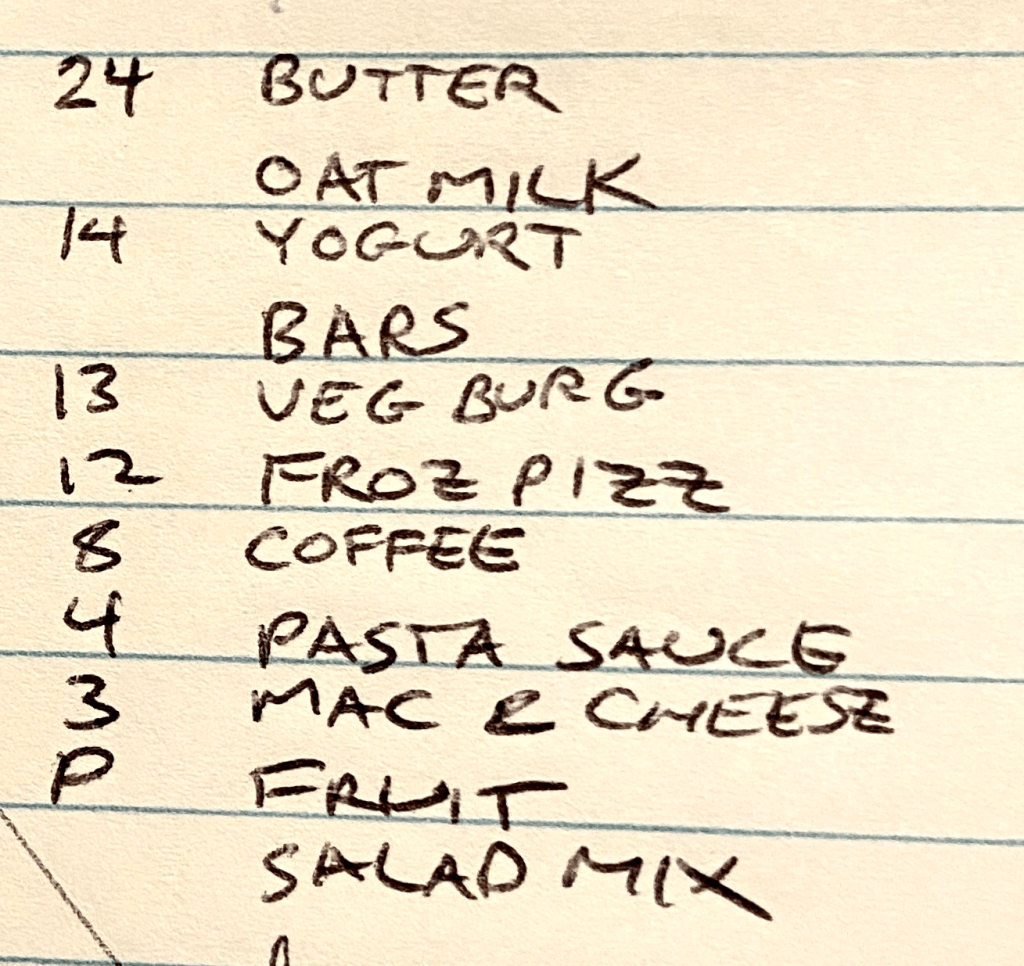 24 BUTTER
OAT MILK
14 YOGURT
BARS
13 VEG BURG
12 FROZ PIZZ
8 COFFEE
4 PASTA SAUCE
3 MAC & CHEESE
P FRUIT
SALAD MIX